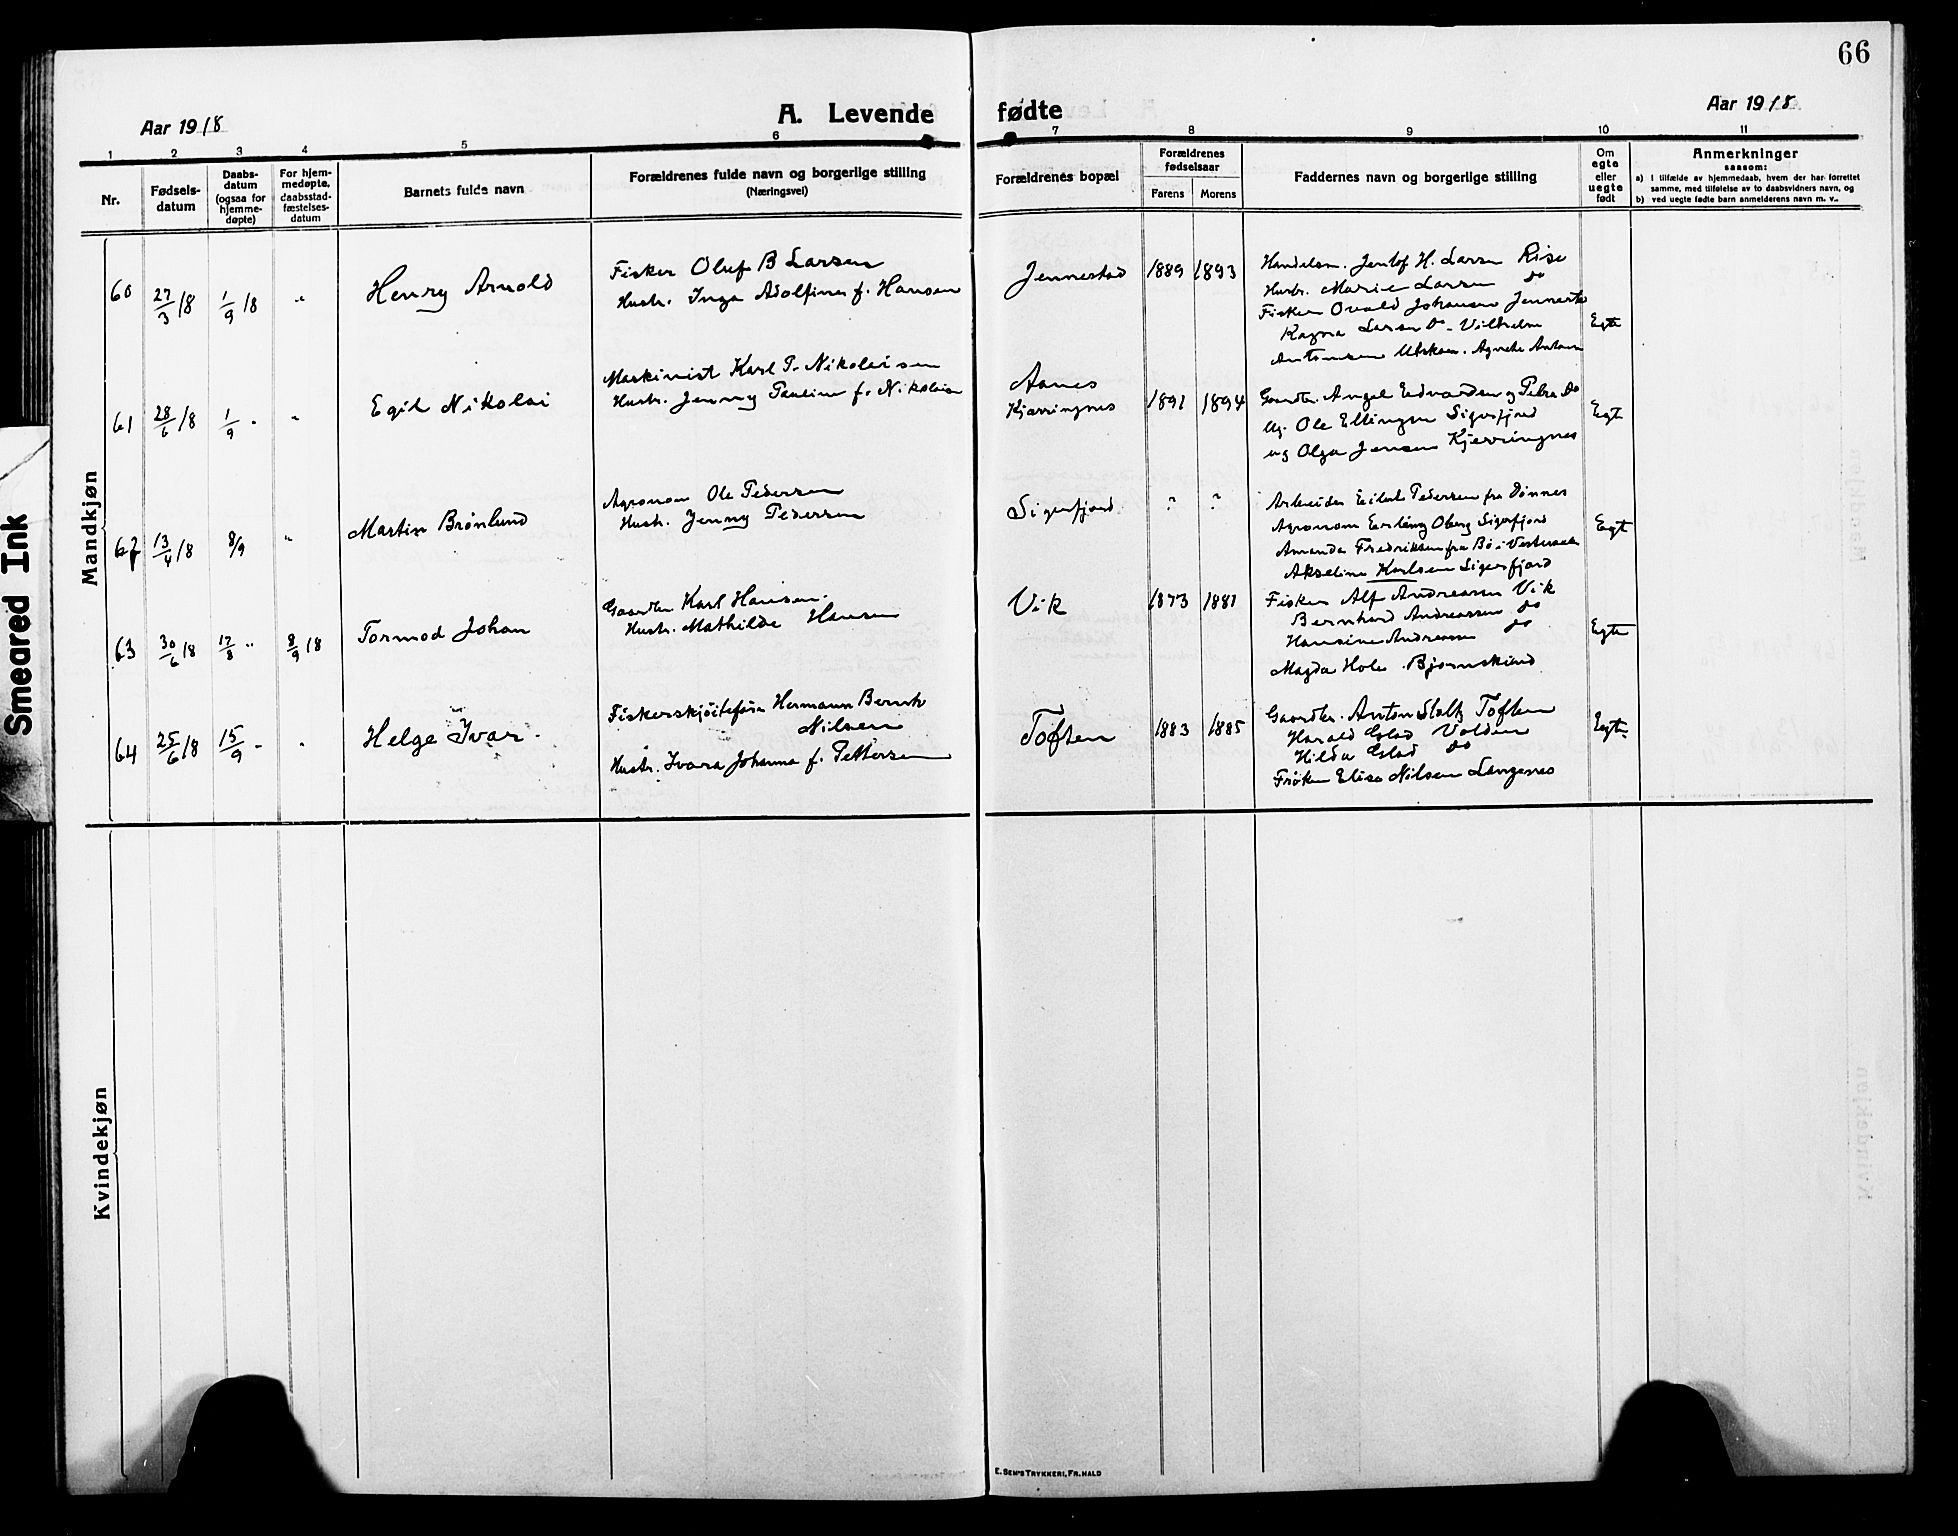 66
Aar 1918
A. Levende fødte
Aar 1918
1 2 3 4 5 6 7 8 9 10 11
Nr.
Fødsels-
datum
Daabs-
datum
(ogsaa for
hjemme-
døpte)
For hjem-
medøpte,
daabsstad-
fæstelses-
datum
Barnets fulde navn
Forældrenes fulde navn og borgerlige stilling
(Næringsvei)
Forældrenes bopæl
Forældrenes
fødselsaar
Farens Morens
Faddernes navn og borgerlige stilling
Om
egte
eller
uegte
født
Anmerkninger
saasom:
a) I tilfælde av hjemmedaab, hvem der har forrettet
samme, med tilføielse av to daabsvidners navn, og
b) ved uegte fødte barn anmelderens navn m. v..
Mandkjøn
60 27/3 18 1/9 18 " Henry Arnold
Fisker Oluf B Larsen
Hustr. Inga Adolfine f. Hansen
Jennestad 1889 1893
Handelsm. Jentof H. Larsen Rise
Hustr. Marie Larsen do
Fisker Osvald Johansen Jennestad
Ragna Larsen Do - Vilhelm
Antonsen . Agnete Antons
Egte
61 28/6 18 1/9 " " Egil Nikolai
Maskinist Karl P. Nikolaisen
Hustr. Jenny Pauline f. Nikolaisen
Aanes
Kjerringnes
1891 1894
Gaardbr. Angel Edvardsen og Petra Do
Ug. Ole Ellingsen Sigerfjord
og Olga Jensen Kjerringnes
Egt
62 13/4 18 8/9 " Martin Brønlund
Agronom Ole Pedersen
Hustr. Jenny Pedersen
Sigerfjord ? ?
Arbeider Eilert Pedersen fra Dønnes
Agronom Erling Oberg Sigerfjord
Amanda Fredriksen fra Bø i Vesteraalen
Akseline Karlsen Sigerfjord
Egt
63 30/6 18 17/8 " 8/9 18 Tormod Johan
Gaardbr Karl Hansen.
Hustr. Mathilde Hansen
Vik 1873 1881
Fisker Alf Andreassen Vik
Bernhard Andreassen do
Hansine Andreassen do
Magda Hole . Bjørnskind
Egte
64 25/6 18 15/9 - " Helge Ivar.
Fiskerskjøitefører Hermann Bernh
Nilsen
Hustr. Ivara Johanna f. Pettersen
Toften 1883 1885
Gaardbr. Anton Stoltz Toften
Harald Volden
Hilda do
Frøken Elise Nilsen Langenes
Egte
Kvindekjøn
Smeared Ink
E. Sem's Trykkeri, Fr.hald